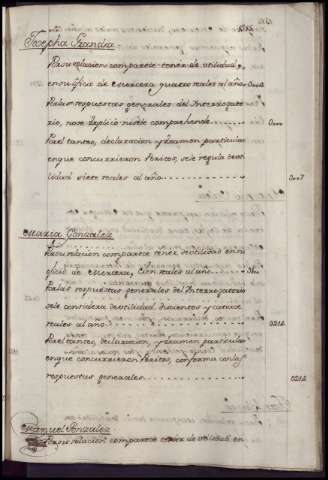 Josepha Garcia
Por su relacion comparece tener de utilidad,
en su ofizio de Mercera quatro reales al año
Por las respuestas generales del Interrogato
rio, no se expecio ni se le comprehende
Por el tanteo, declaracion, y examen particular
en que concurrieron Peritos, se le regula de uti
lidad siete reales al año
0007
Maria Gonzalez
Por su relacion comparece tener de utilidad en su
oficio de Mercera, cien reales al año
Por las respuestas generales del Interrogatorio
se le considera de utilidad, doscientos y catorce
reales al año
0214
Por el tanteo, declaracion, y examen particular
en que concurrieron Peritos, conforma con las
respuestas generales
0214
Manuel Gonzalez
Por su relacion comparece tener de utilidad en